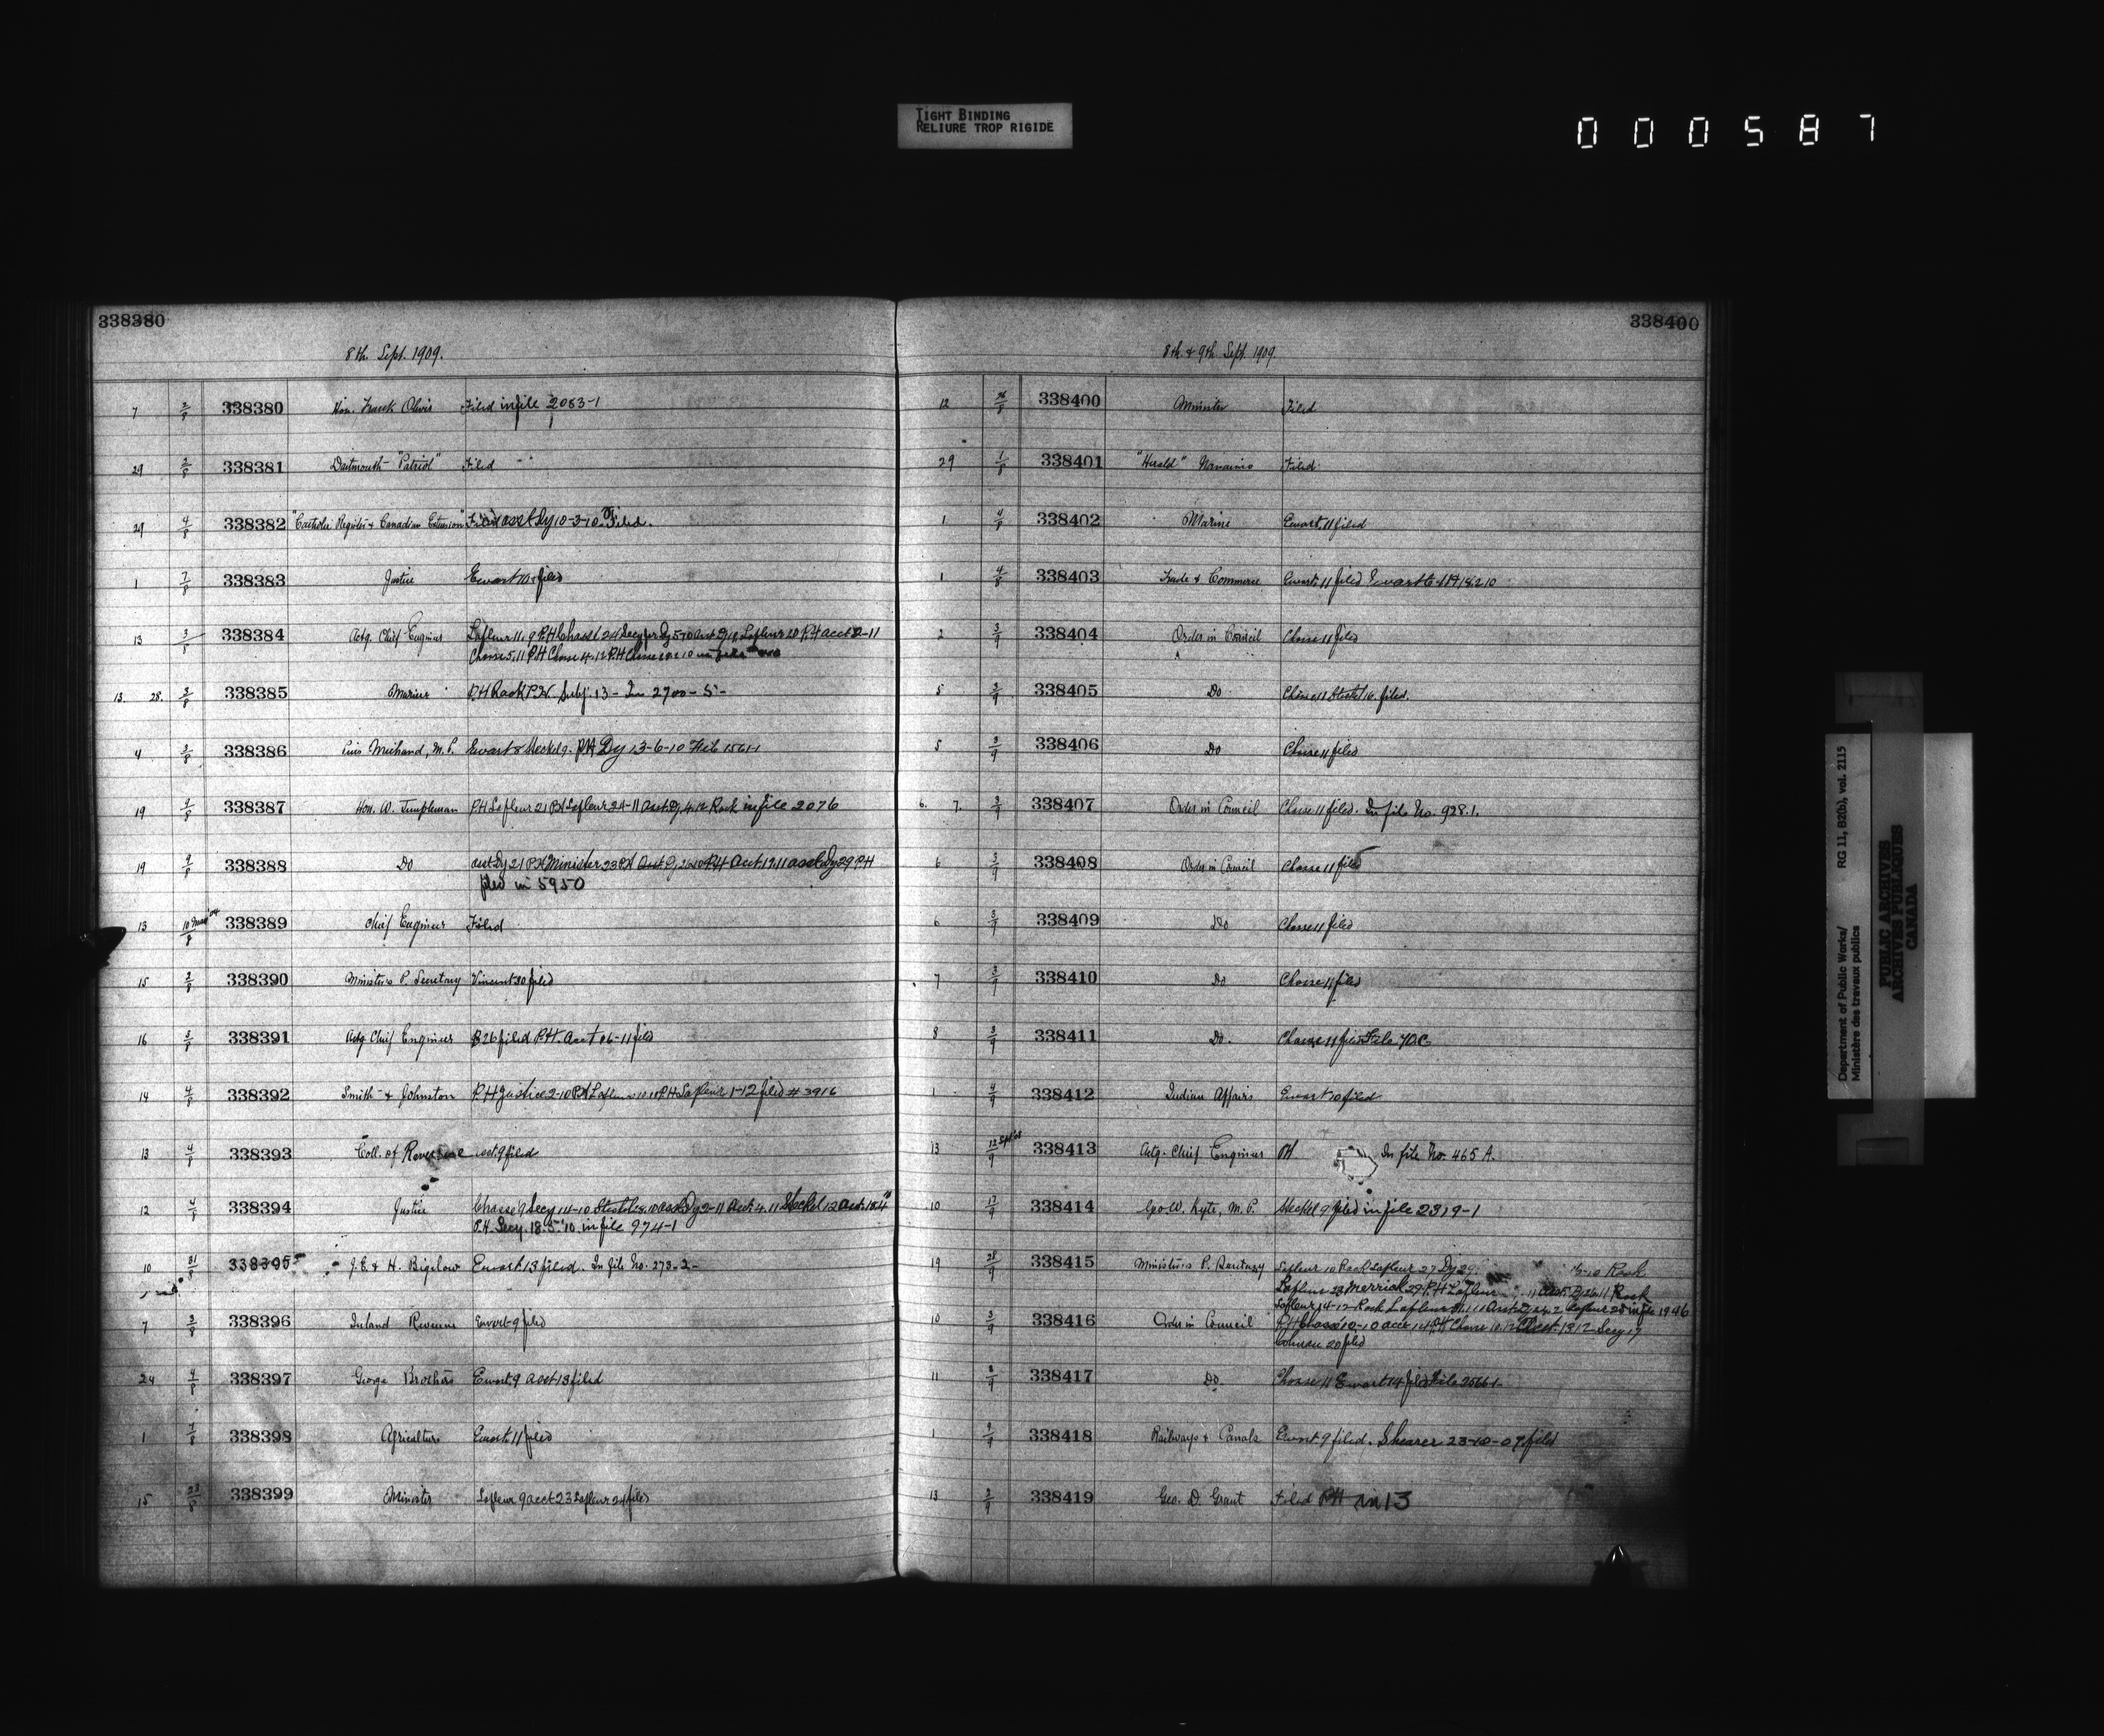 TIGHT BINDING
RELIURE TROP RIGIDE
000587
338380
8th. Sept. 1909.
7 2/8 338380 Hon. Frank Oliver Filed in file 2083-1
29 2/8 338381 Dartmouth "Patriot" Filed
29 4/8 338382 "Catholic Register & Canadian Extension" Filed asst Dy 10-3-10. Filed.
1 7/8 338383 Justice Ewart 10 filed
13 3/8 338384 Actg. Chief Engineer Lafleur 11.9 P.H Chasse 24
Chasse 5.11 P.H Chasse 4.12 P.H Chasse
13. 28. 3/8 338385 Marine P.H Rack P.W. Subj. 13 - In 2700-5-
4 3/8 338386 M.P. Ewart 8 Steckel 9. P.H Dy 13-6-10 File 1561-1
19 338387 Hon. W. Templeman P.H Lafleur 21 P.H Lafleur 24-11 Asst Dy. 4.12 Rack in file 2076
19 338388 Do asst Dy 21 P.H Minister 23 P.H asst Dy 29 P.H
filed in 5950
13 338389 Chief Engineer Filed
15 3/8 338390 Minister's P. Secretary Vincent 30 filed
16 3/8 338391 Actg Chief Engineer B 26 filed P.H. Acct 06-11 filed
14 4/8 338392 Smith & Johnston P.H Justice 2-10 P.H Lafleur P.H Lafleur 1-12 filed # 3916
13 4/8 338393 Coll. of Revenue acct. 9 filed
12 4/8 338394 Justice Chasse 9 Secy 14-10
P.H. Secy. 18.5.'10. in file 974-1
10 31/8 338395 J.E. & H. Bigelow Ewart 13 filed. In file No. 273-2-
7 3/8 338396 Inland Revenue Ewart 9 filed
24 4/8 338397 George Brothers Ewart. 9 acct 13 filed
1 7/8 338398 Agriculture Ewart. 11 filed
15 23/8 338399 Minister Lafleur 9 acct 23 Lafleur 24 filed
338400
8th. & 9th. Sept. 1909.
12 26/8 338400 Minister Filed
29 1/8 338401 "Herald" Nanaimo Filed
1 4/8 338402 Marine Ewart. 11 filed
1 4/8 338403 Trade & Commerce Ewart. 11 filed Ewart
2 3/9 338404 Order in Council Chasse 11 filed
5 3/9 338405 Do Chasse 11 Steckel 16. filed.
5 3/9 338406 Do Chasse 11 filed
6. 7. 3/9 338407 Order in Council Chasse 11 filed. In file No. 928.1.
6 3/9 338408 Order in Council Chasse 11 filed
6 3/9 338409 Do Chasse 11 filed
7 3/9 338410 Do Chasse 11 filed
8 3/9 338411 Do. Chasse 11 filed File 70c
1 4/9 338412 Indian Affairs Ewart 10 filed
13 338413 Actg. Chief Engineer P.H In file No. 465 A.
10 338414 Geo. W. Kyte, M.P. Steckel 9 filed in file 2319-1
19 28/9 338415 Minister's P. Secretary Lafleur 10 Rack Lafleur 27 Dy 29 Rack
Lafleur 23 Merrick 29 P.H Lafleur Rack
Lafleur 14-12 Rack Lafleur in file 1946
10 3/9 338416 Order in Council P.H Chasse 10-10 Chasse 10.12 Acct. 13 12 Secy 17
20 filed
11 338417 Do Chasse 11 Ewart 14 filed File 2566-1-
1 338418 Railways & Canals Ewart 9 filed. Shearer 23-10-09 filed
13 2/9 338419 Geo. D. Grant Filed P.H in 13
Department of Public Works/ RG 11, B2(b), vol. 2115
Ministère des travaux publics
PUBLIC ARCHIVES
ARCHIVES PUBLIQUES
CANADA